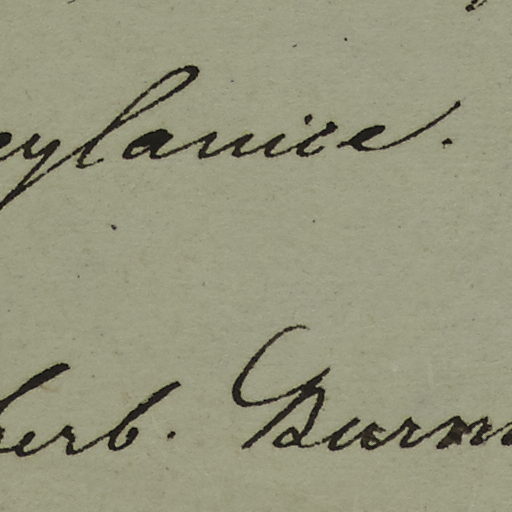 eylanice.
herb. Burm